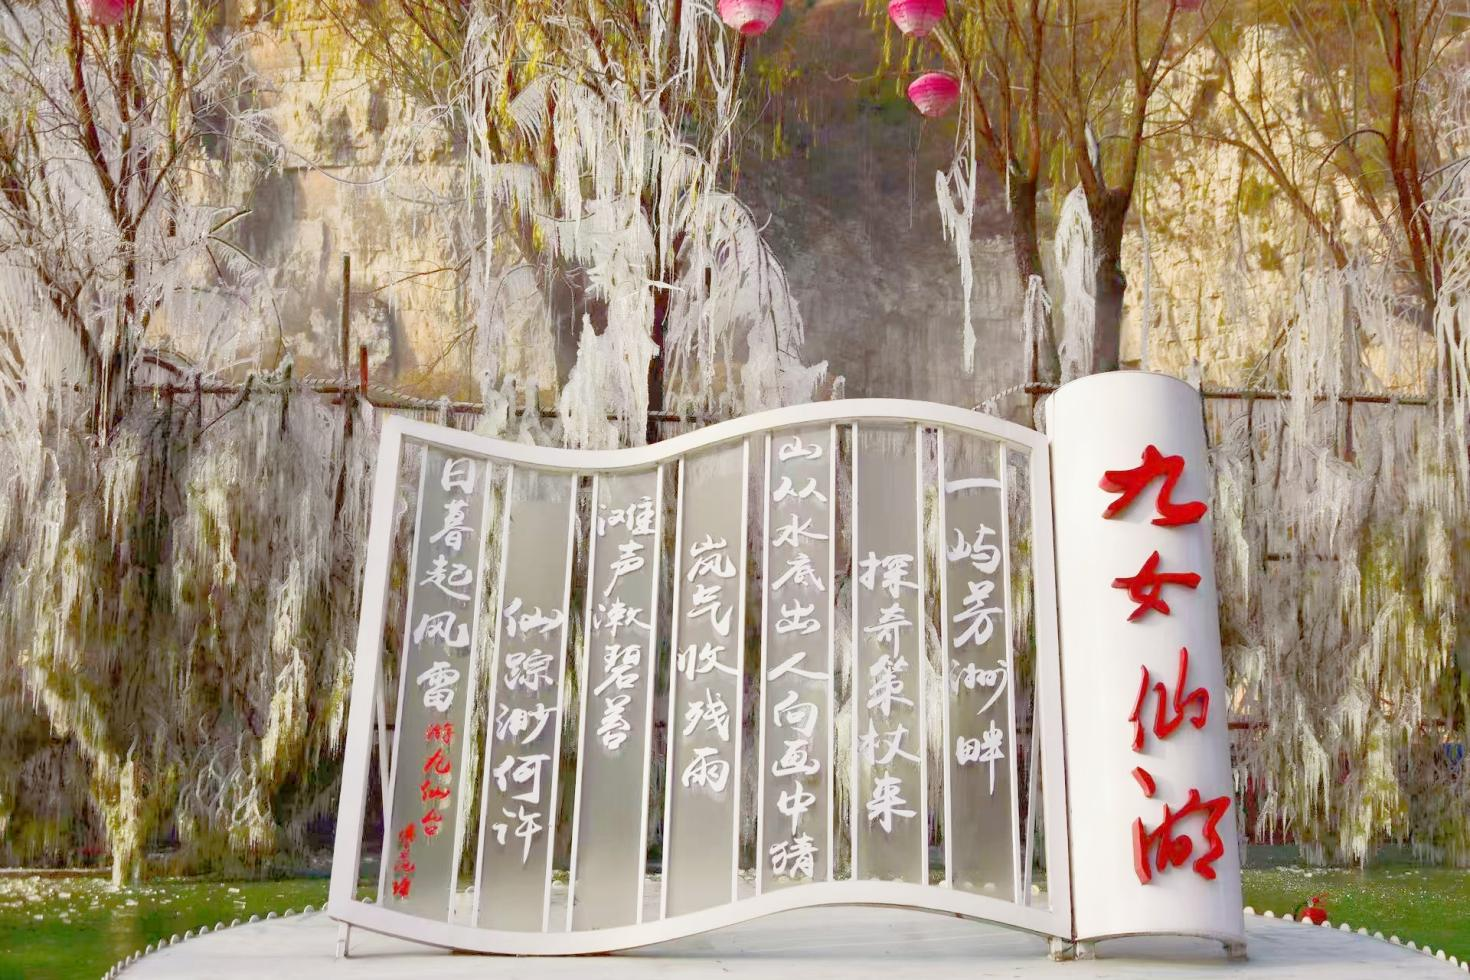 九女仙湖
一屿芳洲畔
探奇策杖来
山从水底出人向画中猜
岚气收残雨
滩声漱碧苔
仙踪渺何许
日暮起风雷
游九仙台